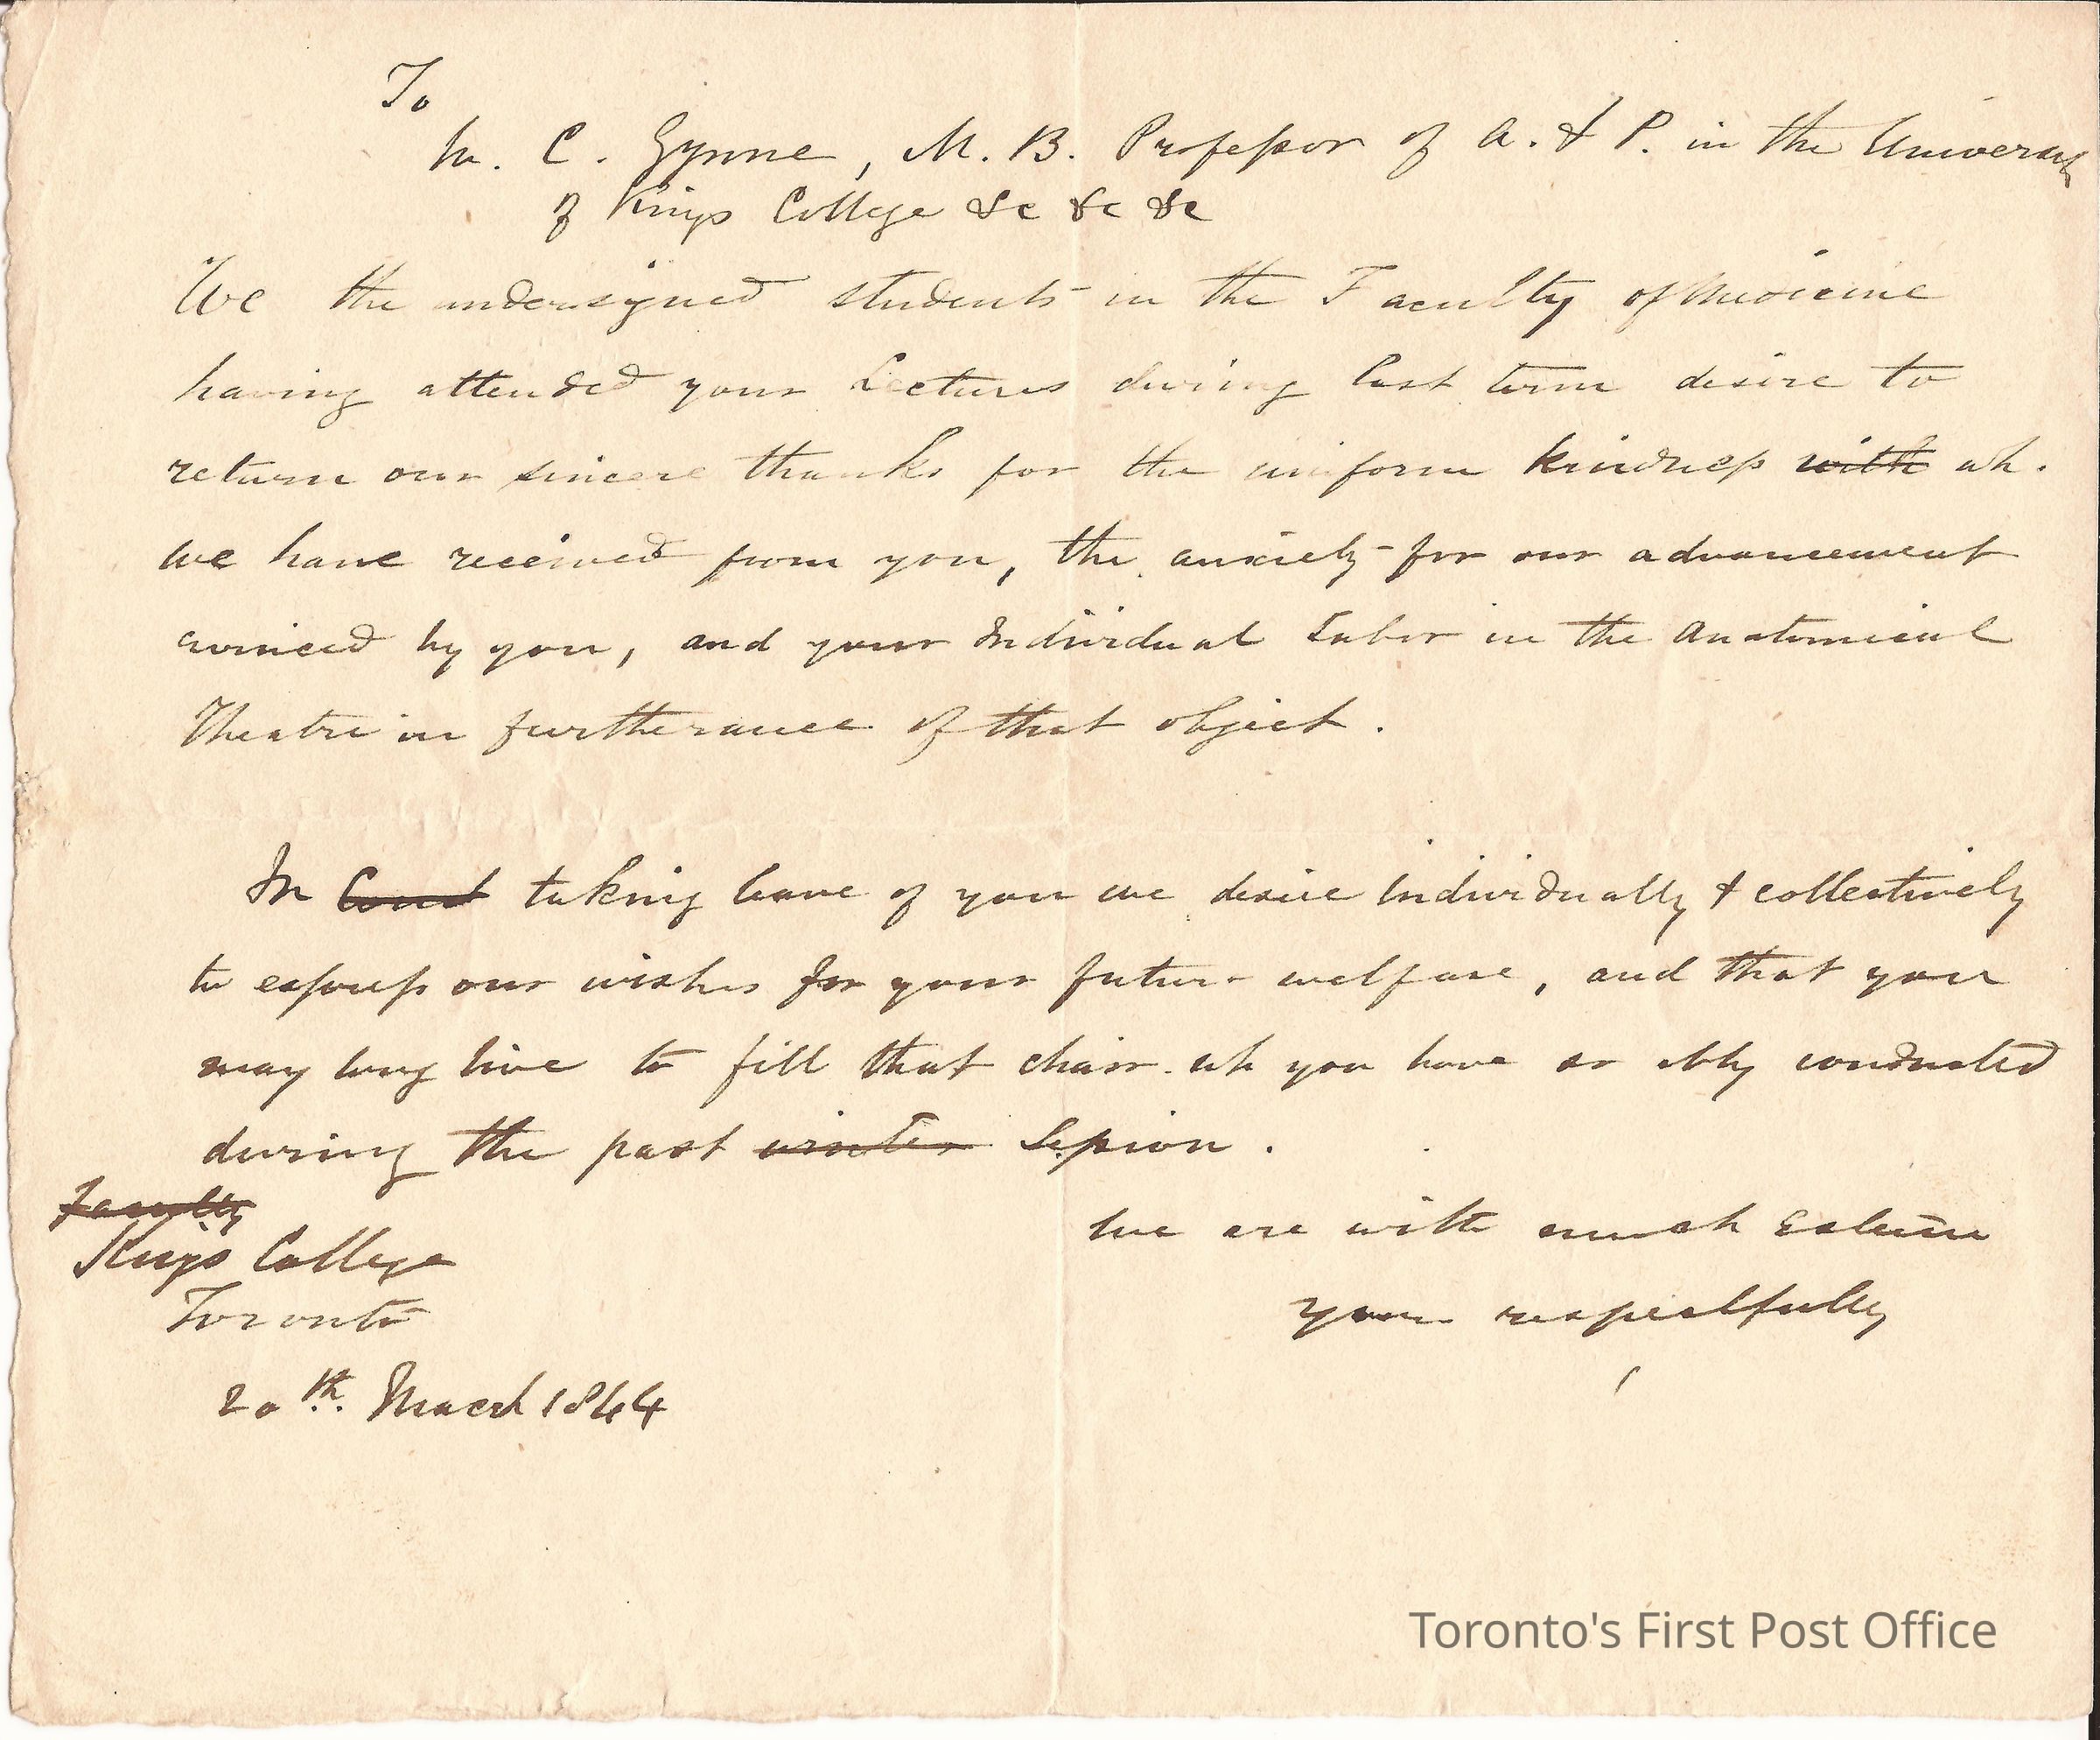 To
W. C. Gynne, M. B. Professor of A. & P. in the University
of Kings College &c &c &c
We the undersigned students in the Faculty of Medicine
having attended your Lectures during last term desire to
return our sincere thanks for the uniform kindness with wh.
we have received from you, the anxiety for our advancement
evinced by you, and your Individual Labor in the Anatomical
Theatre in furtherance of that object.
In taking leave of you we desire Individually & collectively
to express our wishes for your future welfare, and that you
may long live to fill that chair wh you have so ably conducted
during the past winter Session.
Faculty
Kings College
Toronto
20th. March 1844
We are with much Esteem
your respectfully
Toronto's First Post Office